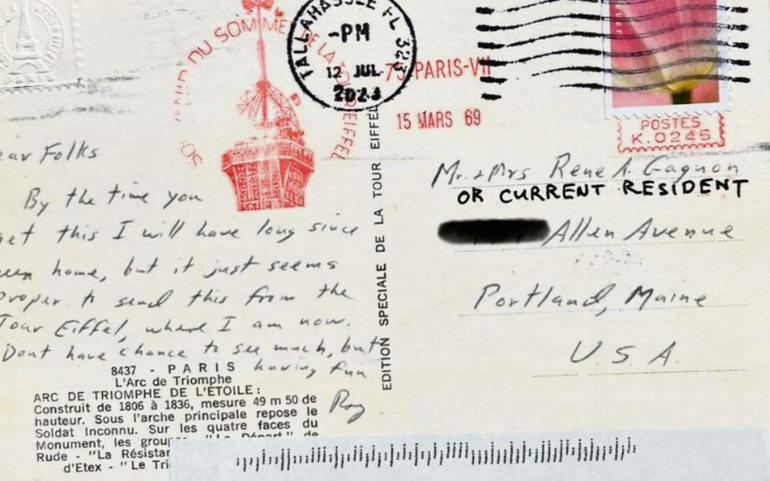 PARIS
SOUVENIR DU SOMMET DE LA TOUR EIFFEL
TALLAHASSEE FL 323
-PM
12 JUL
2023
75 PARIS-VII
15 MARS 69
POSTES
K.0245
ear Folks
By the time you
get this I will have long since
been home, but it just seems
proper to send this from the
Tour Eiffel, where I am now.
Dont have chance to see much, but
having fun
Roy
EDITION SPECIALE DE LA TOUR EIFFEL
Mr. + Mrs Rene A. Gagnon
OR CURRENT RESIDENT
Allen Avenue
Portland, Maine
U.S.A.
8437 - PARIS
L'Arc de Triomphe
ARC DE TRIOMPHE DE L'ÉTOILE :
Construit de 1806 à 1836, mesure 49 m 50 de
hauteur. Sous l'arche principale repose le
Soldat Inconnu. Sur les quatre faces du
Monument, les group "Le Départ" de
Rude - "La Résistan
d'Etex - "Le Tri